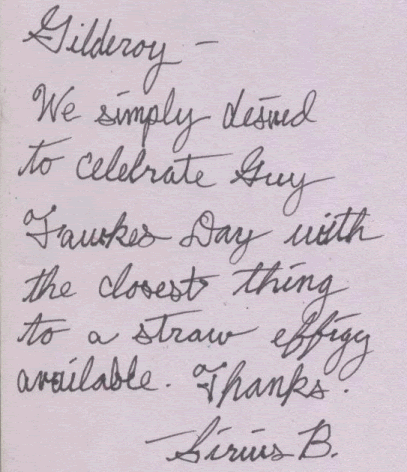 Gilderoy –
We simply desired
to celebrate Guy
Fawkes Day with
the closest thing
to a straw effigy
available. Thanks.
—Sirius B.